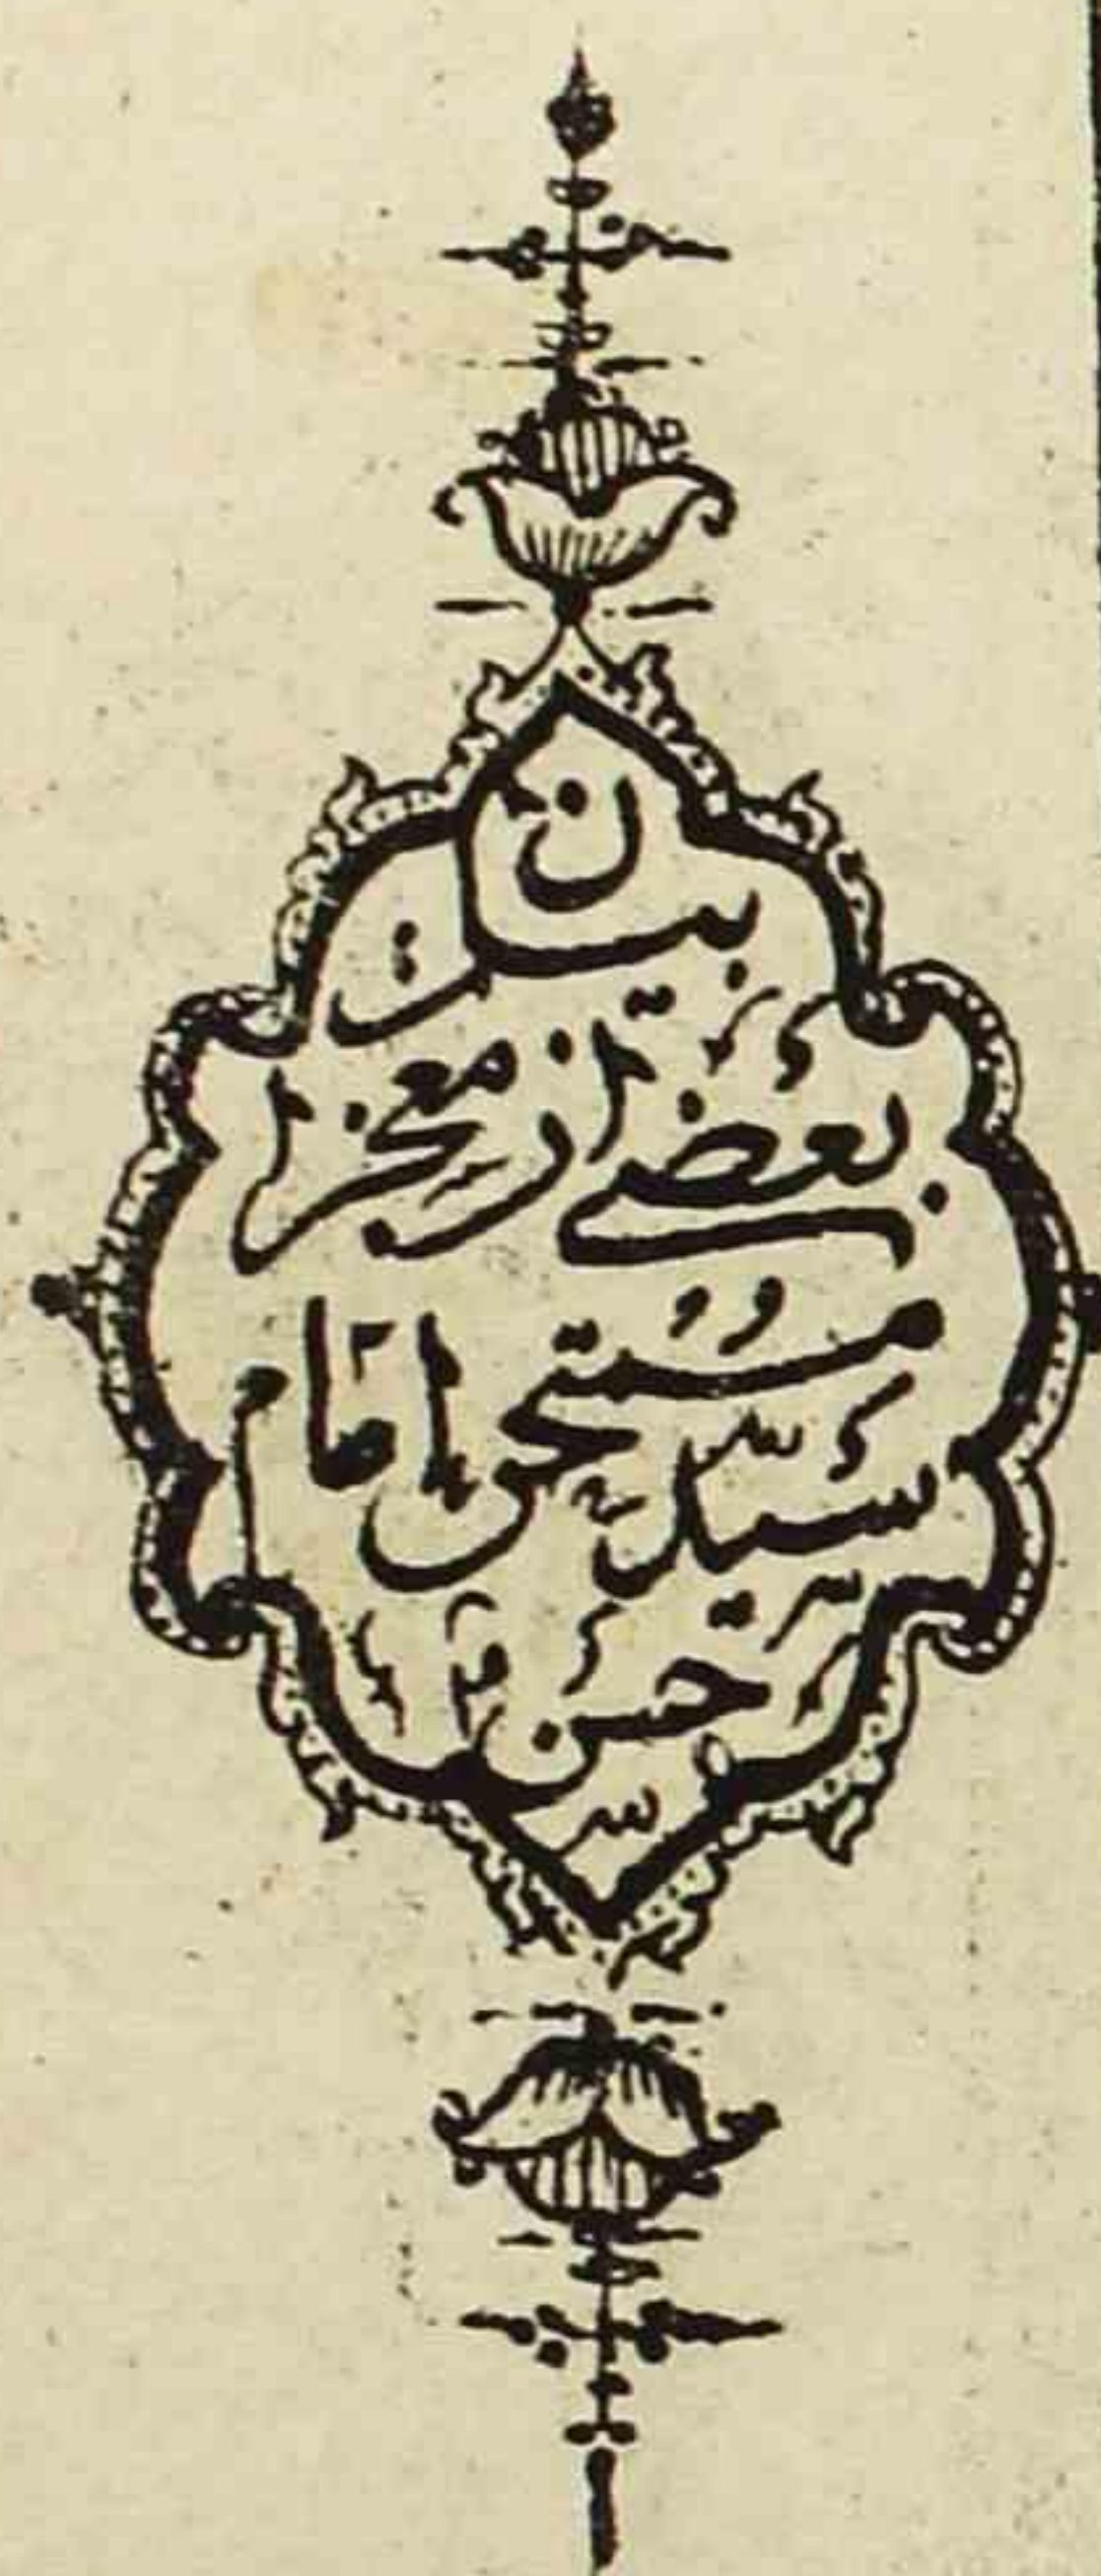 بیان
بعضی از معجزات
سیّد مستحق امام
حسن